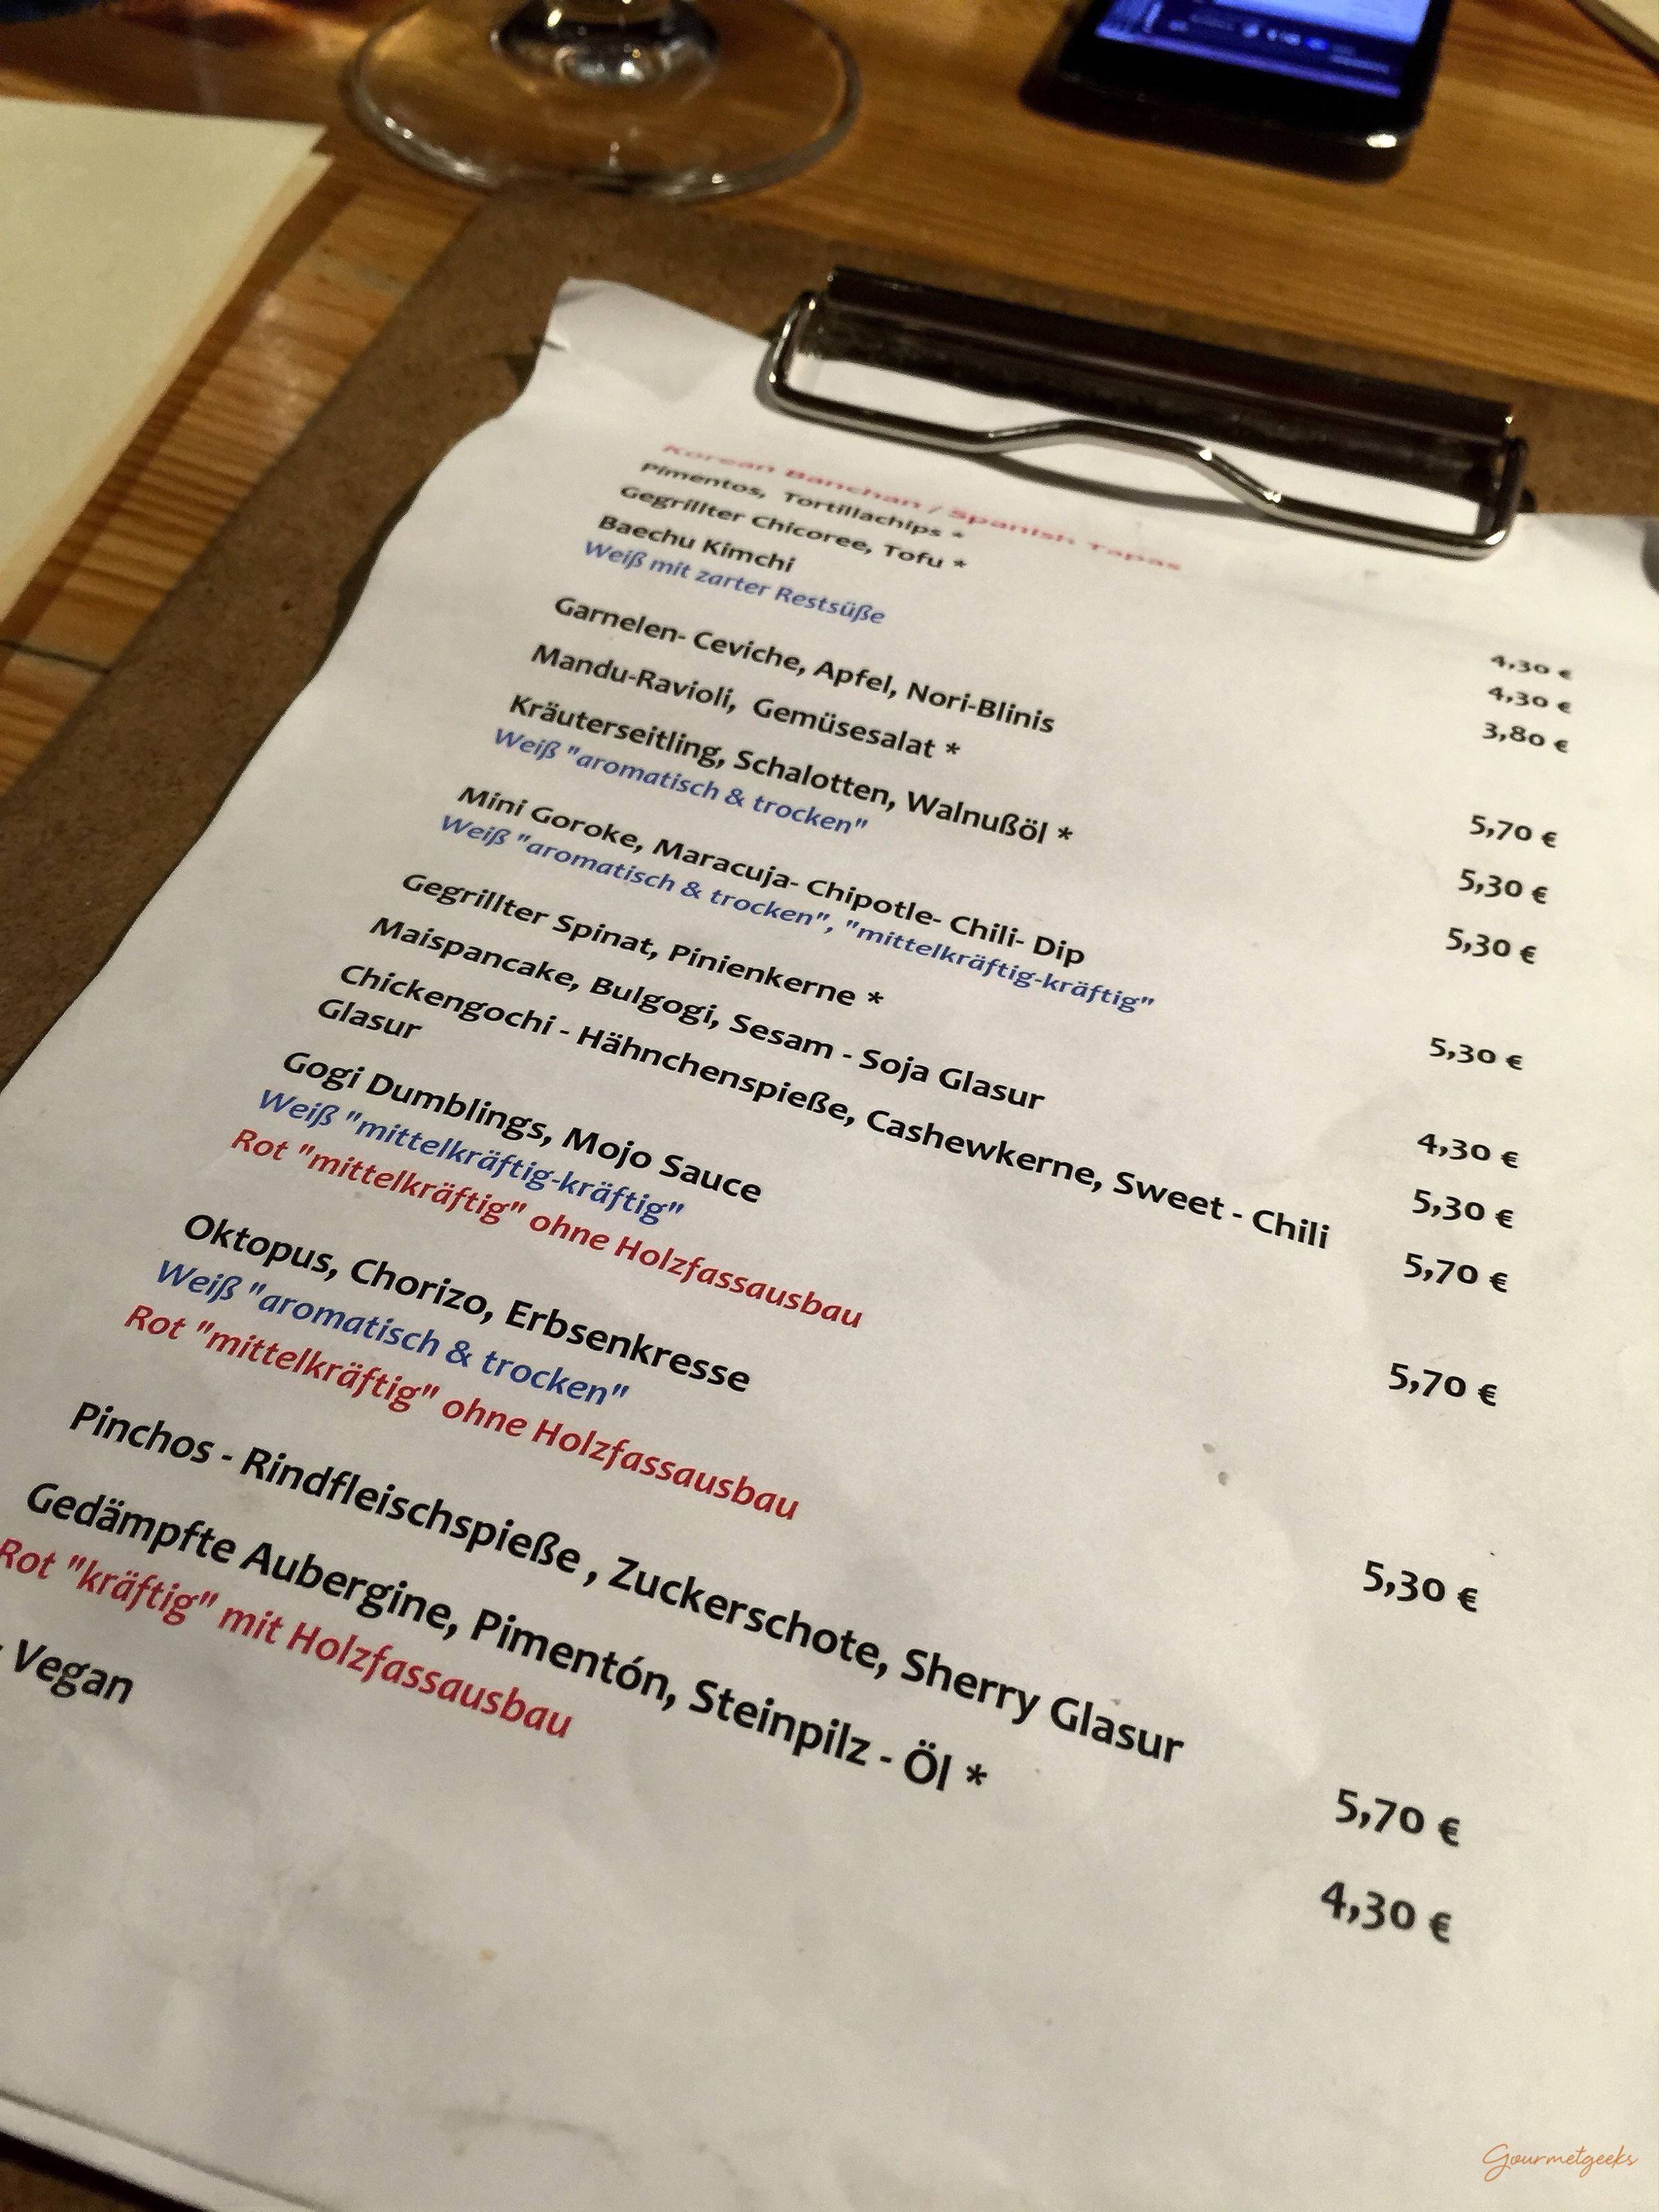 Korean Banchan / Spanish Tapas
Pimentos, Tortillachips * 4,30 €
Gegrillter Chicoree, Tofu * 4,30 €
Baechu Kimchi 3,80 €
Weiß mit zarter Restsüße
Garnelen- Ceviche, Apfel, Nori-Blinis 5,70 €
Mandu-Ravioli, Gemüsesalat * 5,30 €
Kräuterseitling, Schalotten, Walnußöl * 5,30 €
Weiß "aromatisch & trocken"
Mini Goroke, Maracuja- Chipotle- Chili- Dip 5,30 €
Weiß "aromatisch & trocken", "mittelkräftig-kräftig"
Gegrillter Spinat, Pinienkerne * 4,30 €
Maispancake, Bulgogi, Sesam - Soja Glasur 5,30 €
Chickengochi - Hähnchenspieße, Cashewkerne, Sweet - Chili 5,70 €
Glasur
Gogi Dumblings, Mojo Sauce 5,70 €
Weiß "mittelkräftig-kräftig"
Rot "mittelkräftig" ohne Holzfassausbau
Oktopus, Chorizo, Erbsenkresse 5,30 €
Weiß "aromatisch & trocken"
Rot "mittelkräftig" ohne Holzfassausbau
Pinchos - Rindfleischspieße , Zuckerschote, Sherry Glasur 5,70 €
Gedämpfte Aubergine, Pimentón, Steinpilz - Öl * 4,30 €
Rot "kräftig" mit Holzfassausbau
Vegan
Gourmetgeeks